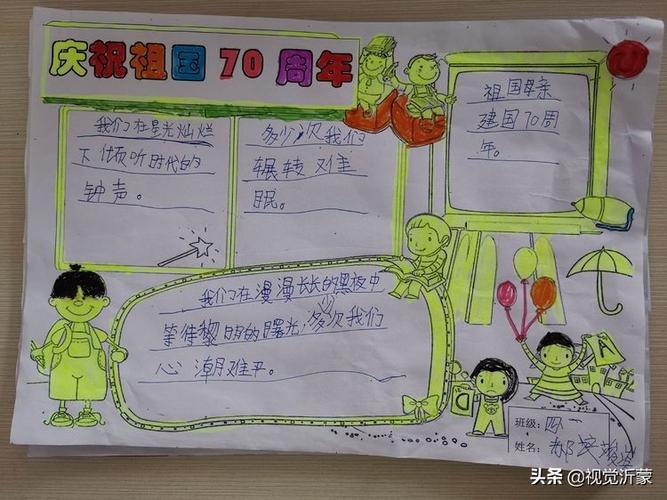 庆祝祖国70周年
我们在星光灿烂
下倾听时代的
钟声。
多少次我们
辗转难
眠。
祖国母亲
建国70周
年。
我们在漫漫长长的黑夜中
等待黎明的曙光,多次我们
心潮难平。
班级: 四一
姓名:
头条@视觉沂蒙